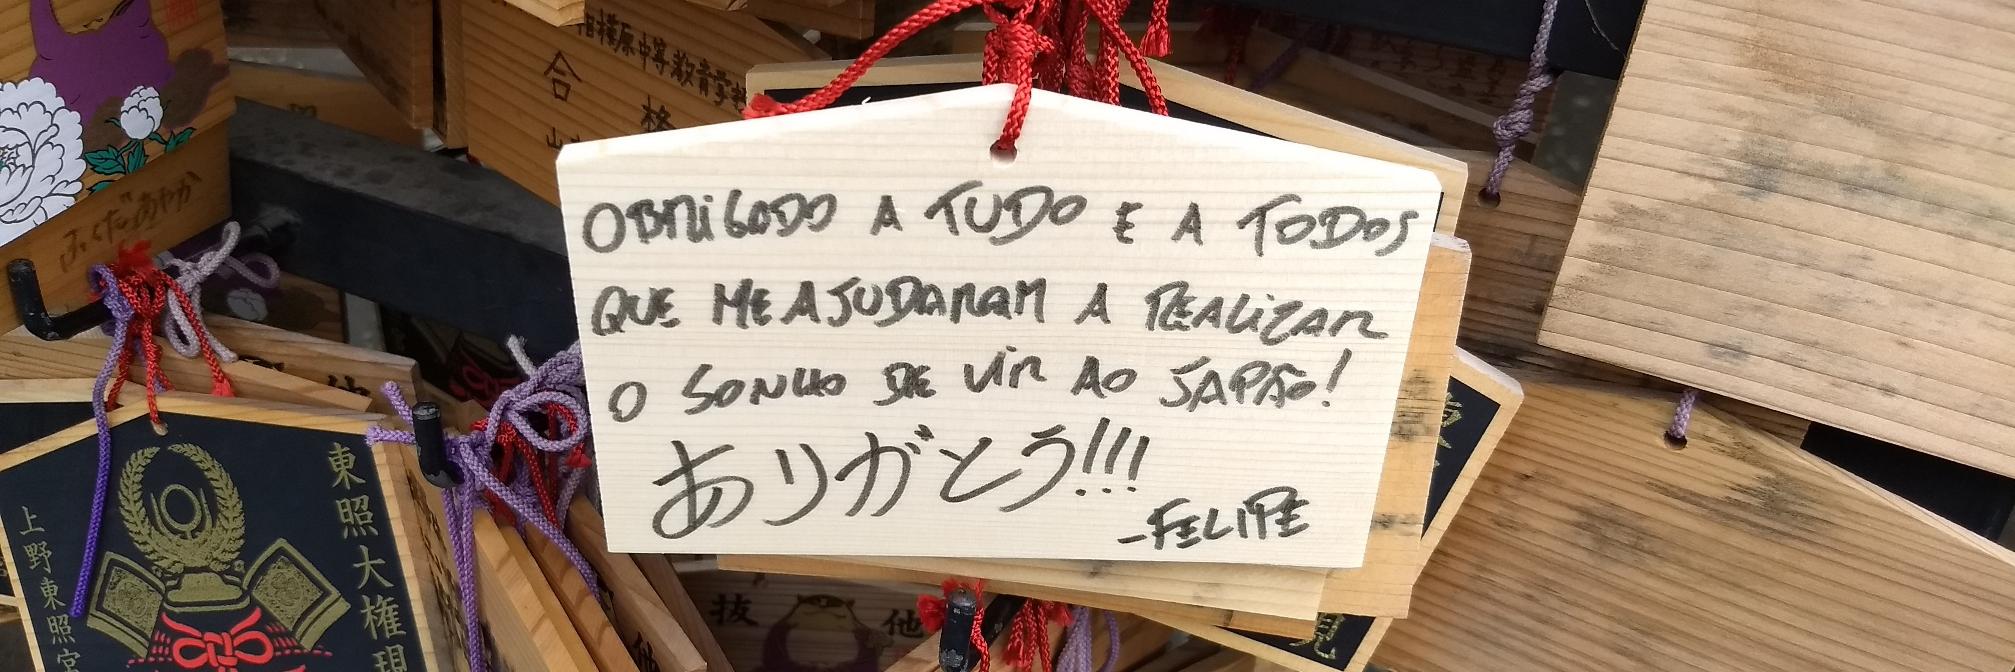 OBRIGADO A TUDO E A TODOS
QUE ME AJUDARAM A REALIZAR
O SONHO DE VIR AO JAPÃO!
ありがとう!!!
-FELIPE
相模原中等教育学校
合格
ふくだあやか
東照大権現
上野東照宮
抜
他